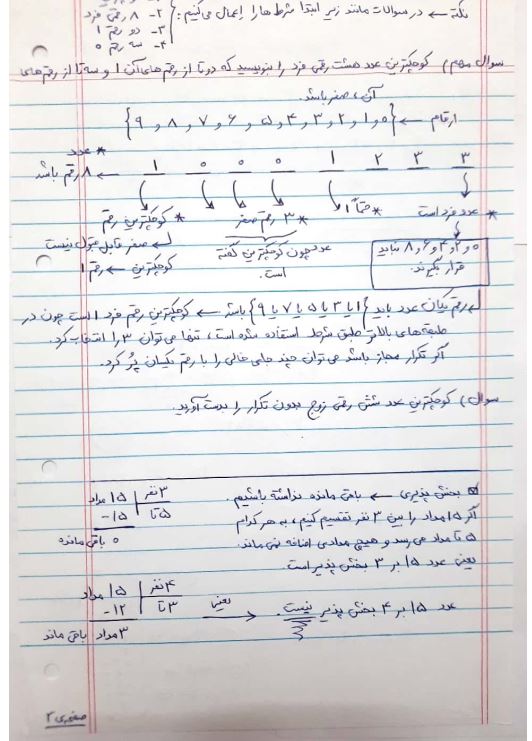 نکته ← در سوالات مانند زیر ابتدا شرط ها را اعمال می‌کنیم:
۲- ۸ رقمی فرد
۳- دو رقم ۱
۴- سه رقم ۰
سوال مهم) کوچکترین عدد هشت رقمی فرد را بنویسید که دوتا از رقم های آن ۱ و سه تا از رقم های
آن، صفر باشد.
ارقام ← {۰ و ۱ و ۲ و ۳ و ۴ و ۵ و ۶ و ۷ و ۸ و ۹}
* عدد
۸ رقم باشد ← ۱ ۰ ۰ ۰ ۱ ۲ ۳ ۳
* کوچکترین رقم
صفر قابل قبول نیست
کوچکترین ← رقم ۱
* ۳ رقم صفر
عدد چون کوچکترین گفته
است.
* حتماً ۱
* عدد فرد است
۰ و ۲ و ۴ و ۶ و ۸ نباید
قرار بگیرند.
رقم یکان عدد باید {۱ یا ۳ یا ۵ یا ۷ یا ۹} باشد ← کوچکترین رقم فرد ۱ است چون در
طبقه های بالاتر طبق شرط استفاده شده است، تنها می توان ۳ را انتخاب کرد.
اگر تکرار مجاز باشد می توان چند جای خالی را با رقم یکسان پُر کرد.
سوال) کوچکترین عدد شش رقمی زوج بدون تکرار را بدست آورید.
بخش پذیری ← باقی مانده نداشته باشیم.
اگر ۱۵ مداد را بین ۳ نفر تقسیم کنیم، به هر کدام
۵ تا مداد می رسد و هیچ مدادی اضافه نمی ماند.
یعنی عدد ۱۵ بر ۳ بخش پذیر است.
۱۵ مداد | ۳ نفر
-۱۵ | ۵ تا
۰ باقی مانده
عدد ۱۵ بر ۴ بخش پذیر نیست.
یعنی
۱۵ مداد | ۴ نفر
-۱۲ | ۳ تا
۳ مداد باقی ماند
صفحه‌ی ۲